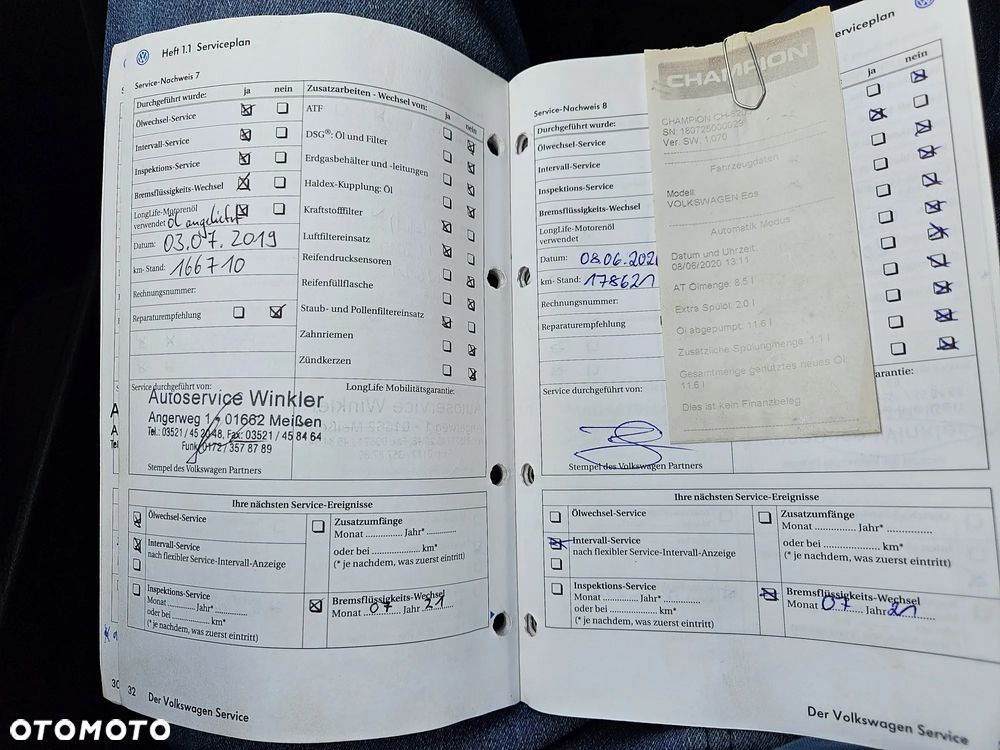 Heft 1.1 Serviceplan
Service-Nachweis 7
Durchgeführt wurde: ja nein
Ölwechsel-Service
Intervall-Service
Inspektions-Service
Bremsflüssigkeits-Wechsel
LongLife-Motorenöl
verwendet Öl angeliefert
Datum: 03.07.2019
km-Stand: 166710
Rechnungsnummer:
Reparaturempfehlung
Zusatzarbeiten - Wechsel von: ja nein
ATF
DSG®: Öl und Filter
Erdgasbehälter und -leitungen
Haldex-Kupplung: Öl
Kraftstofffilter
Luftfiltereinsatz
Reifendrucksensoren
Reifenfüllflasche
Staub- und Pollenfiltereinsatz
Zahnriemen
Zündkerzen
Service durchgeführt von:
LongLife Mobilitätsgarantie:
Autoservice Winkler
Angerweg 1 · 01662 Meißen
Tel.: 03521 / 45 2048, Fax: 03521 / 45 84 64
Funk 0172 / 357 87 89
Stempel des Volkswagen Partners
Ihre nächsten Service-Ereignisse
Ölwechsel-Service
Intervall-Service
nach flexibler Service-Intervall-Anzeige
Inspektions-Service
Monat ........... Jahr* ..............
oder bei ................... km*
(* je nachdem, was zuerst eintritt)
Zusatzumfänge
Monat .............. Jahr* ..............
oder bei ................... km*
(* je nachdem, was zuerst eintritt)
Bremsflüssigkeits-Wechsel
Monat 07 Jahr 21
32 Der Volkswagen Service
30
erviceplan
Service-Nachweis 8
Durchgeführt wurde:
Ölwechsel-Service
Intervall-Service
Inspektions-Service
Bremsflüssigkeits-Wechsel
LongLife-Motorenöl
verwendet
Datum: 08.06.202
km-Stand: 178621
Rechnungsnummer:
Reparaturempfehlung
ja nein
CHAMPION
CHAMPION
SN: 180725000029
Ver. SW: 1.070
Fahrzeugdaten
Modell:
VOLKSWAGEN Eos
Automatik Modus
Datum und Uhrzeit:
08/06/2020 13:11
AT Ölmenge: 8.5 l
Extra Spülöl: 2.0 l
Öl abgepumpt: 11.6 l
Zusätzliche Spülungmenge: 1.1 l
Gesamtmenge genutztes neues Öl:
11.6 l
Dies ist kein Finanzbeleg
Service durchgeführt von:
arantie:
Stempel des Volkswagen Partners
Ihre nächsten Service-Ereignisse
Ölwechsel-Service
Intervall-Service
nach flexibler Service-Intervall-Anzeige
Inspektions-Service
Monat ........... Jahr* ..............
oder bei ................... km*
(* je nachdem, was zuerst eintritt)
Zusatzumfänge
Monat .............. Jahr* ..............
oder bei ................... km*
(* je nachdem, was zuerst eintritt)
Bremsflüssigkeits-Wechsel
Monat 07 Jahr 21
Der Volkswagen Service
OTOMOTO